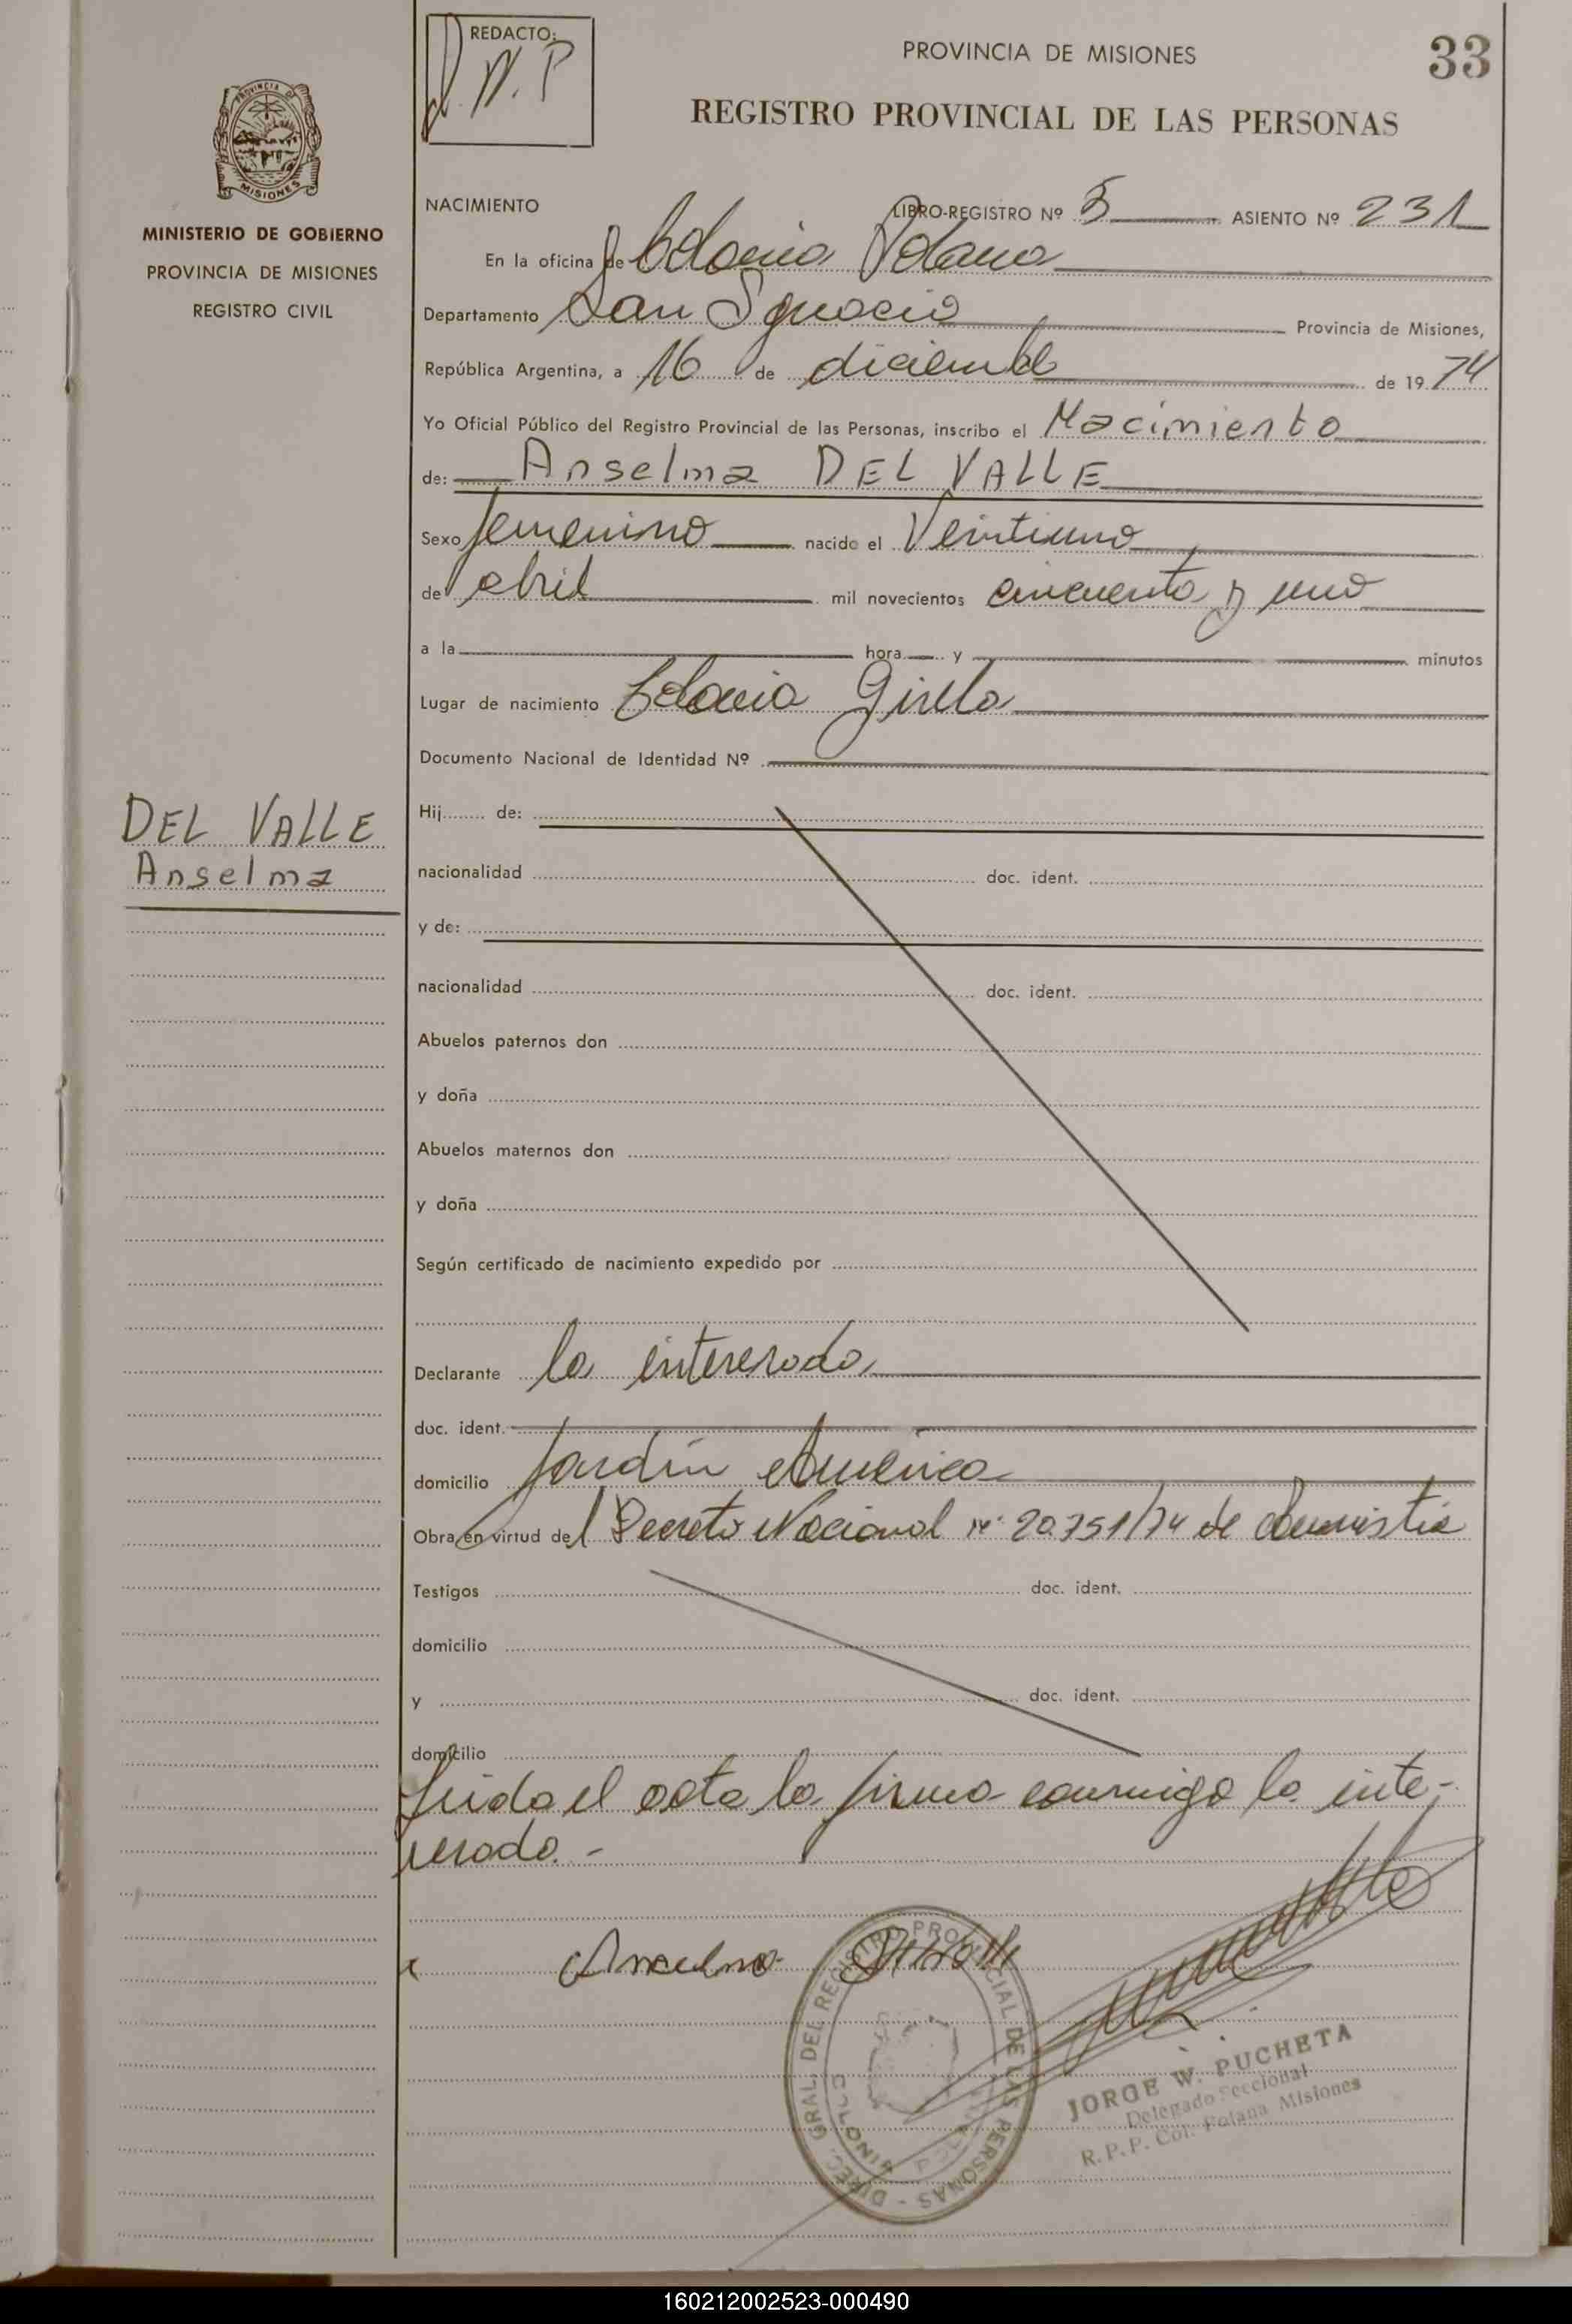 REDACTO:
J.N.P
PROVINCIA DE MISIONES
33
REGISTRO PROVINCIAL DE LAS PERSONAS
PROVINCIA DE
MISIONES
MINISTERIO DE GOBIERNO
PROVINCIA DE MISIONES
REGISTRO CIVIL
NACIMIENTO LIBRO-REGISTRO Nº 5 ASIENTO Nº 231
En la oficina de Colonia Polana
Departamento San Ignacio Provincia de Misiones,
República Argentina, a 16 de diciembre de 19 74
Yo Oficial Público del Registro Provincial de las Personas, inscribo el Nacimiento
de: Anselma DEL VALLE
Sexo femenino nacido el Veintiuno
de abril mil novecientos cincuenta y uno
a la hora y minutos
Lugar de nacimiento Colonia Gisela
Documento Nacional de Identidad Nº
DEL VALLE
Anselma
Hij de:
nacionalidad doc. ident.
y de:
nacionalidad doc. ident.
Abuelos paternos don
y doña
Abuelos maternos don
y doña
Según certificado de nacimiento expedido por
Declarante la interesada
doc. ident.
domicilio Jardín América
Obra en virtud del Decreto Nacional nº 20.751/74 de Amnistía
Testigos doc. ident.
domicilio
y doc. ident.
domicilio
Leída el acta la firma conmigo la inte-
resada.-
x Anselma
DIREC. GRAL. DEL REGISTRO PROVINCIAL DE LAS PERSONAS -
JORGE W. PUCHETA
Delegado Seccional
R.P.P. Col. Polana Misiones
160212002523-000490